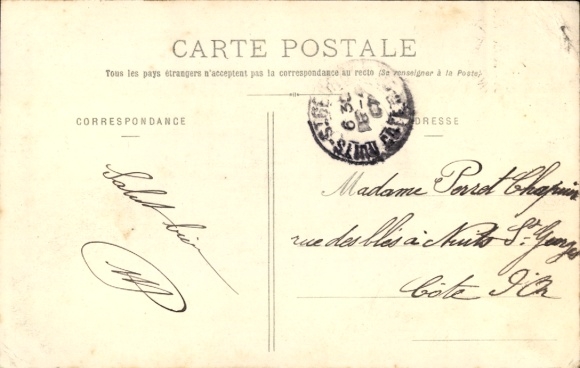 CARTE POSTALE
Tous les pays étrangers n'acceptent pas la correspondance au recto (Se renseigner à la Poste)
CORRESPONDANCE
DRESSE
NUITS-ST-
Salut
Madame Perrot Chapuis
rue des blés à Nuits St Georges
Côte d'Or